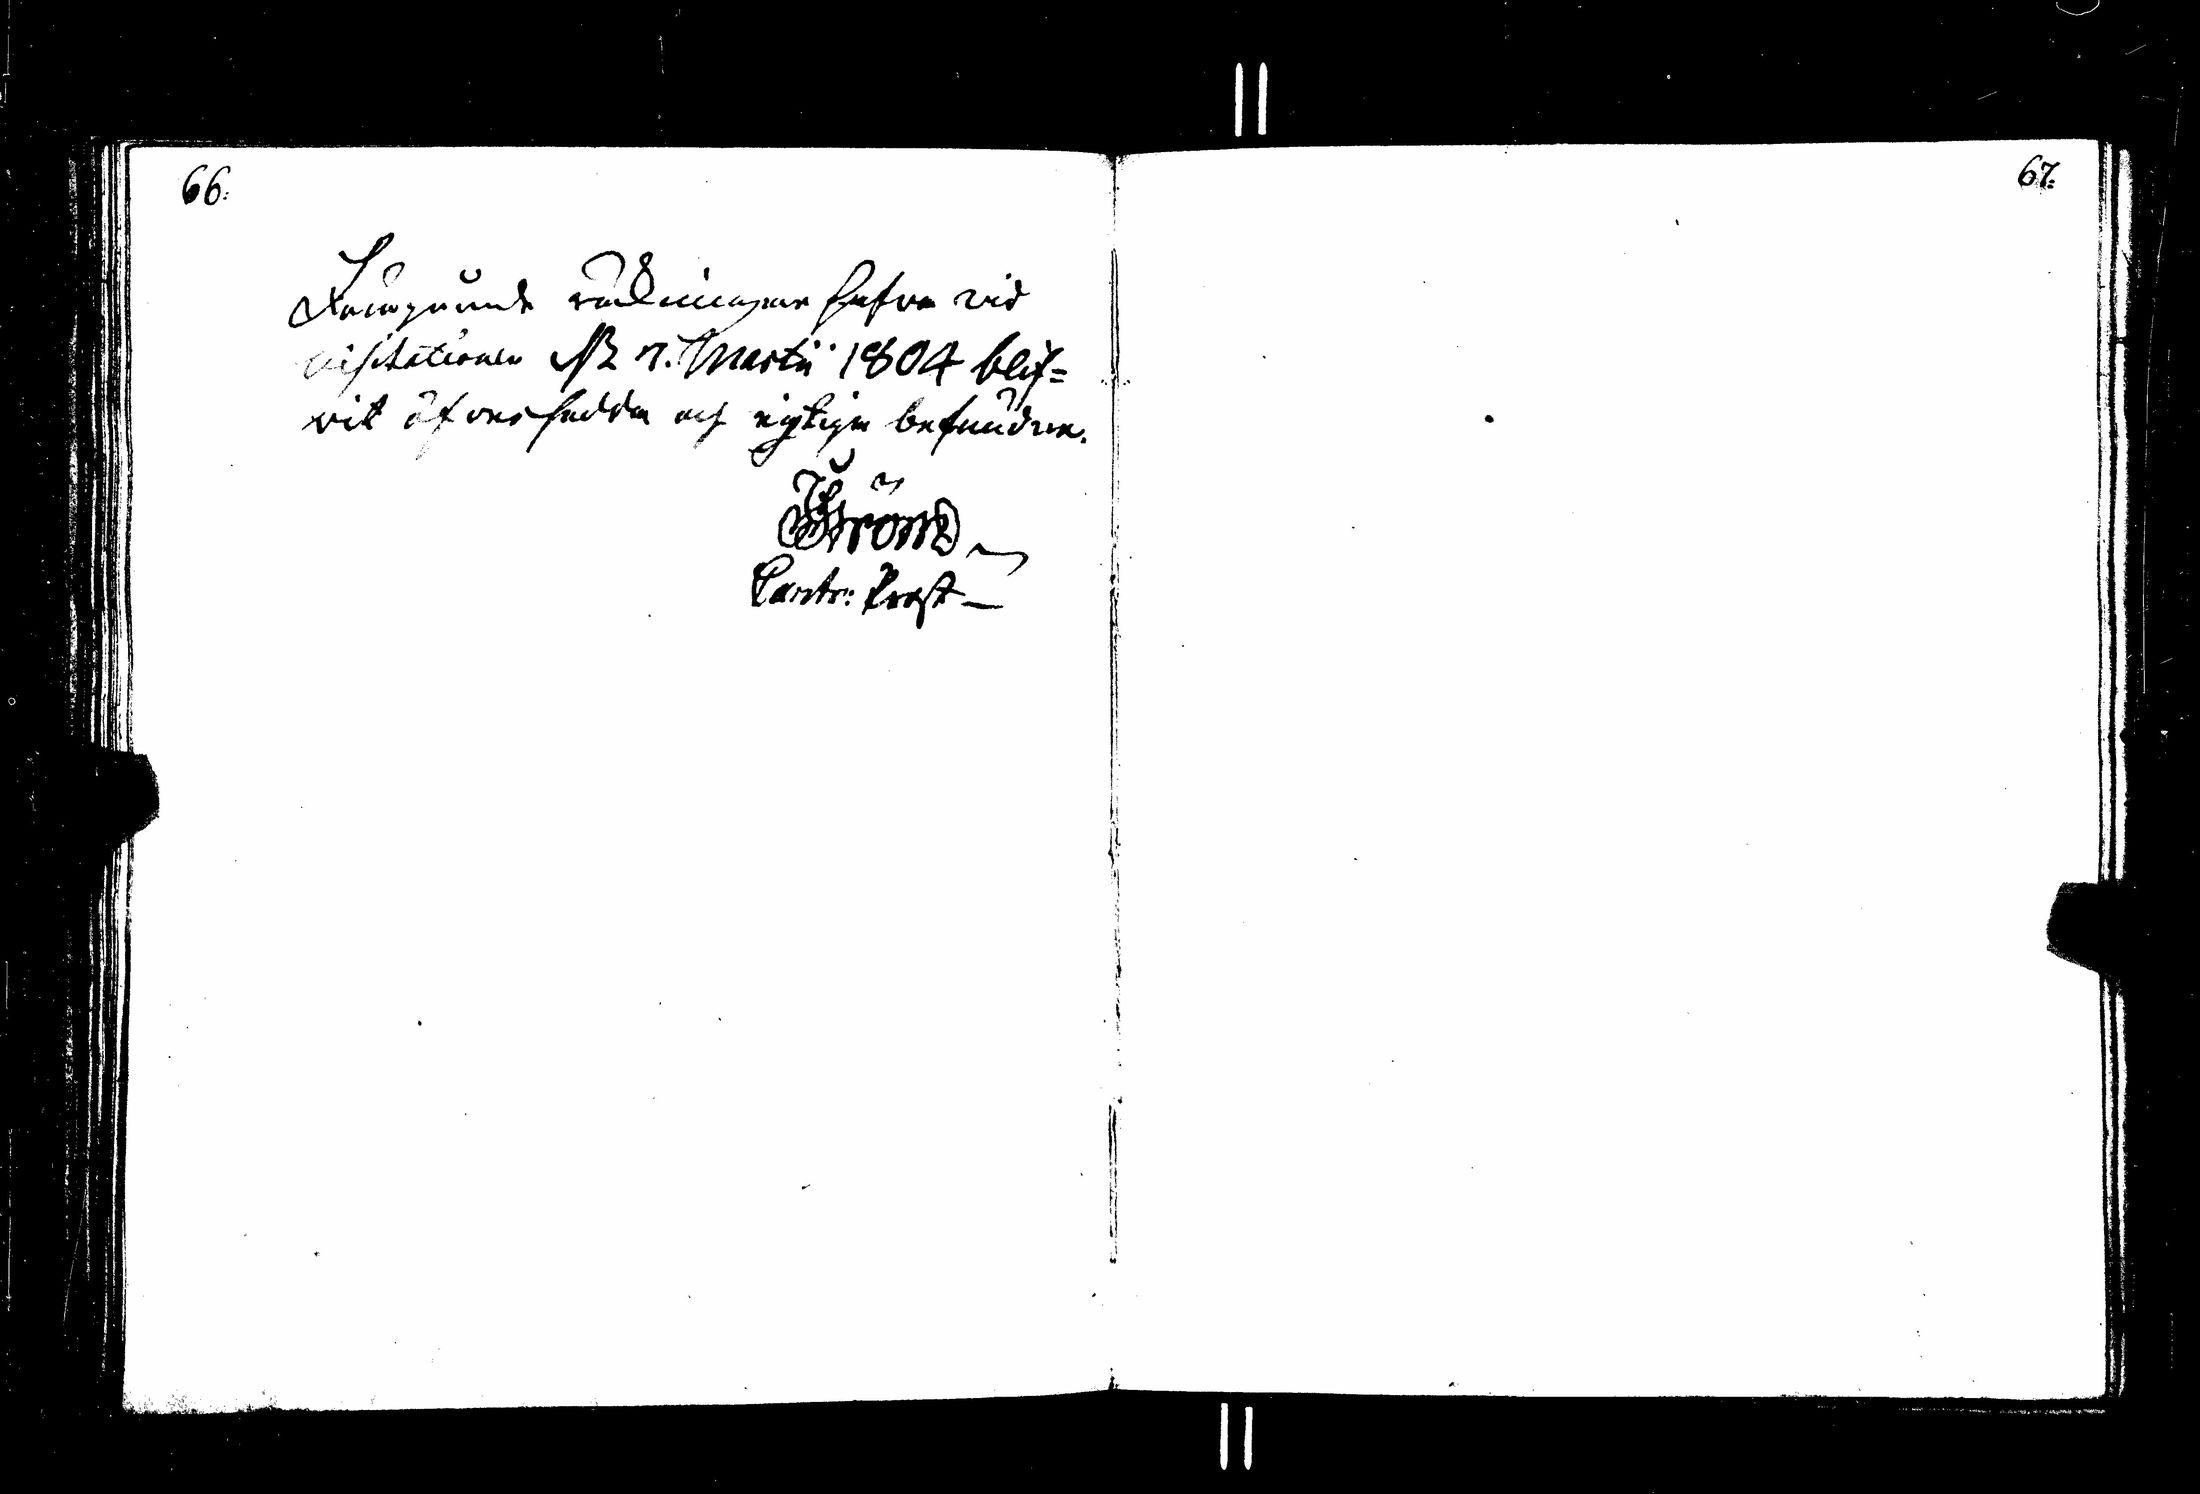 66:
Föregående räkningar hafva vid
visitationen d. 7. Martii 1804 blif=
vit öfversedda och rigtiga befundna.
Ström
Contr: Prost
67: